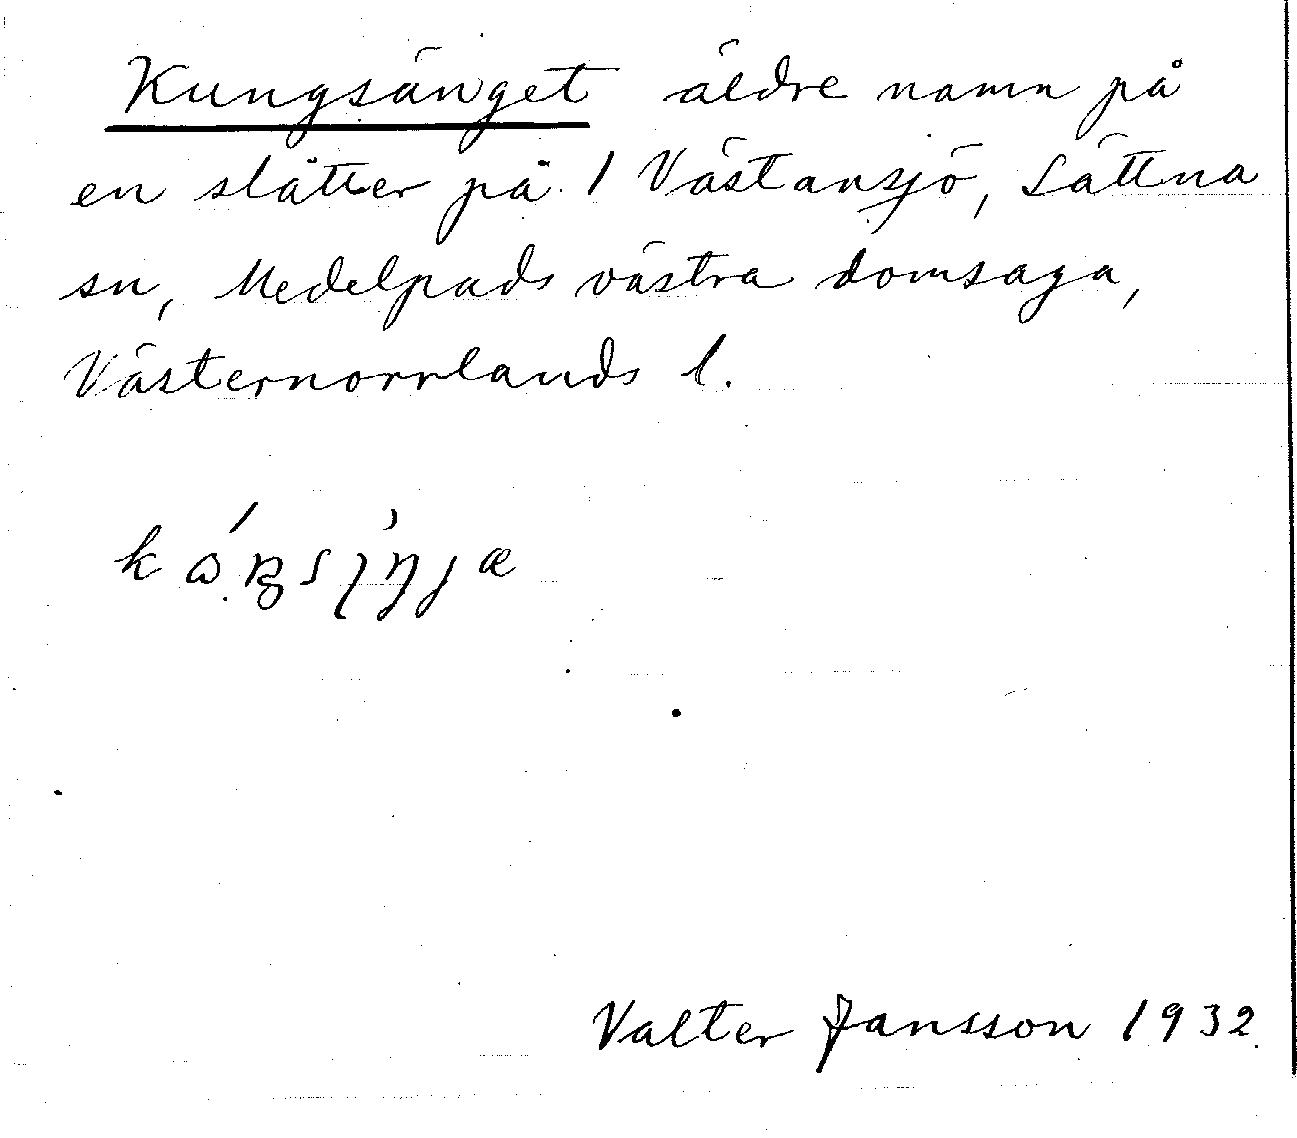 Kungsänget äldre namn på
en slåtter på 1 Västansjö, Sättna
sn, Medelpads västra domsaga,
Västernorrlands l.
Valter Jansson 1932